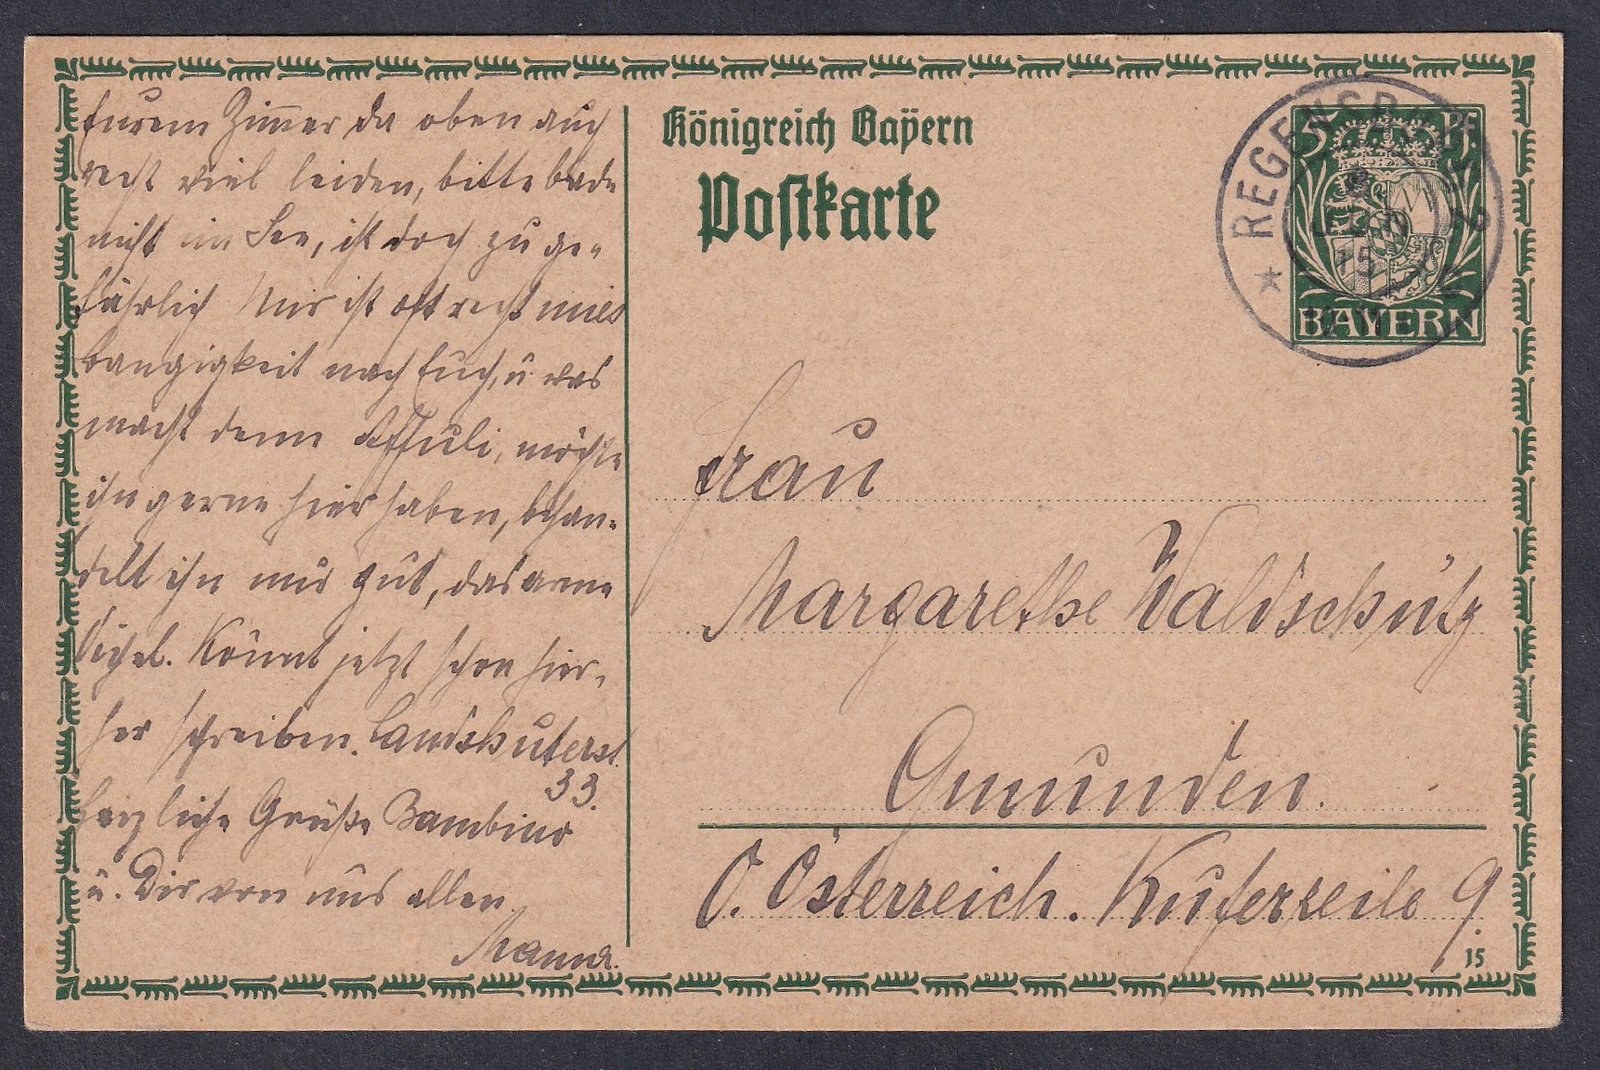 Eurem Zimmer da oben auch
recht viel leiden, bitte bade
nicht im See, ist doch zu ge-
fährlich Mir ist oft recht
bangigkeit nach Euch, u was
macht denn möchte
ihn gerne hier haben, behan-
delt ihn nur gut, das arme
Vichel. Könnt jetzt schon hier-
her schreiben. Landshuterst.
33.
herzliche Grüße Bambino
u. Dir von uns allen.
Mama.
Königreich Bayern
Postkarte
5 Pf
BAYERN
REGENSBURG 2
15
Frau
Margarethe Waldschütz
Gmunden.
O. Österreich. Kuferzeile 9.
15